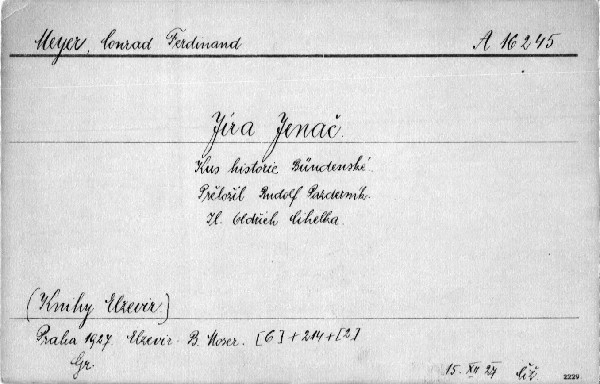 Meyer, Conrad Ferdinand A 16245
Jíra Jenač.
Kus historie Bündenské.
Přeložil Rudolf Pazderník.
Il. Oldřich Cihelka.
(Knihy Elzevir.)
Praha 1927. Elzevir. B. Moser. [6] + 214 + [2]
Gr.
15. XII 27 2229.